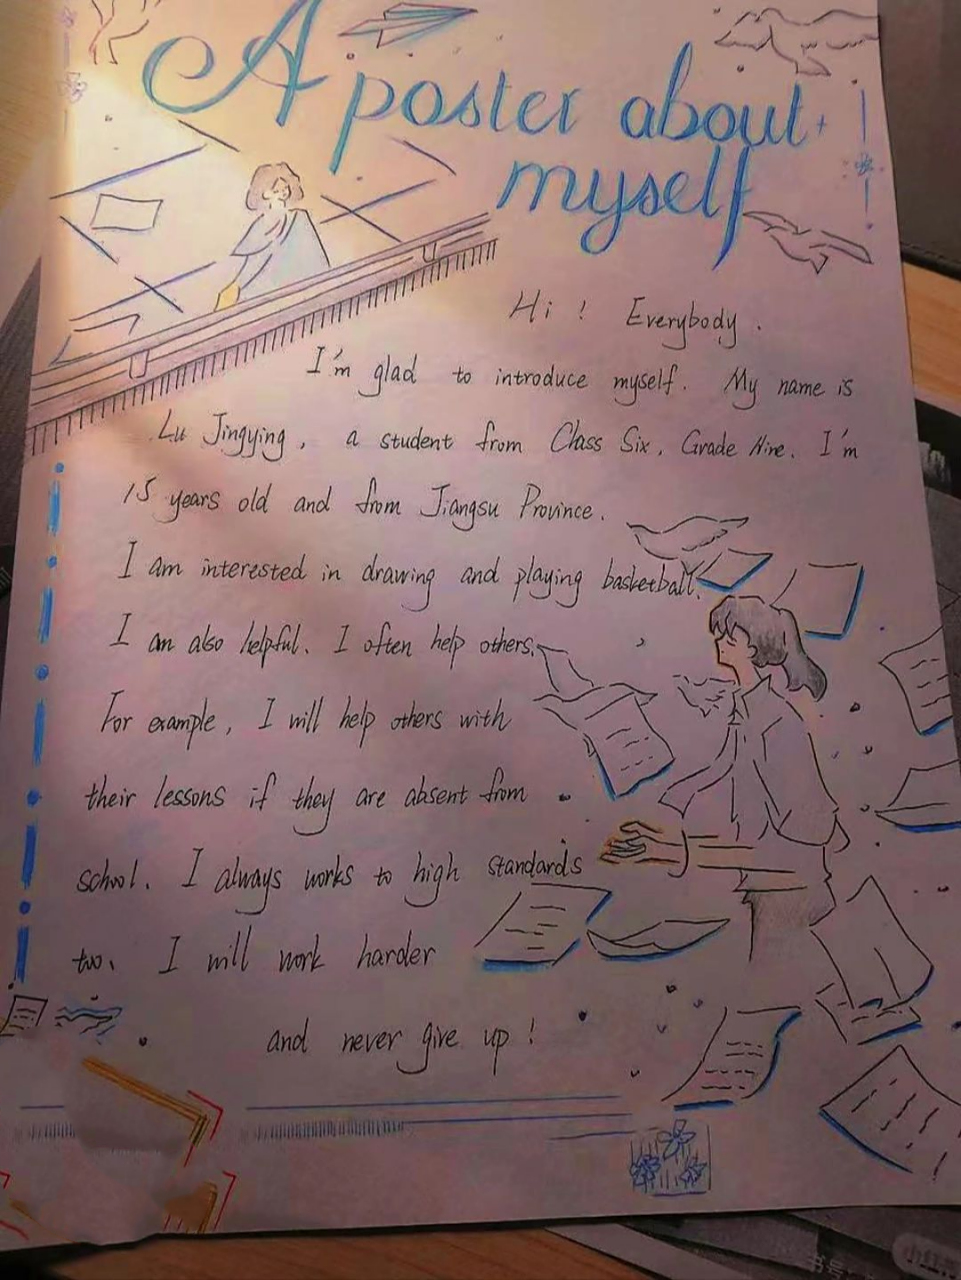 A poster about
myself
Hi! Everybody.
I'm glad to introduce myself. My name is
Lu Jingying, a student from Class Six, Grade Nine. I'm
15 years old and from Jiangsu Province.
I am interested in drawing and playing basketball.
I am also helpful. I often help others.
For example, I will help others with
their lessons if they are absent from
school. I always works to high standards
two. I will work harder
and never give up!